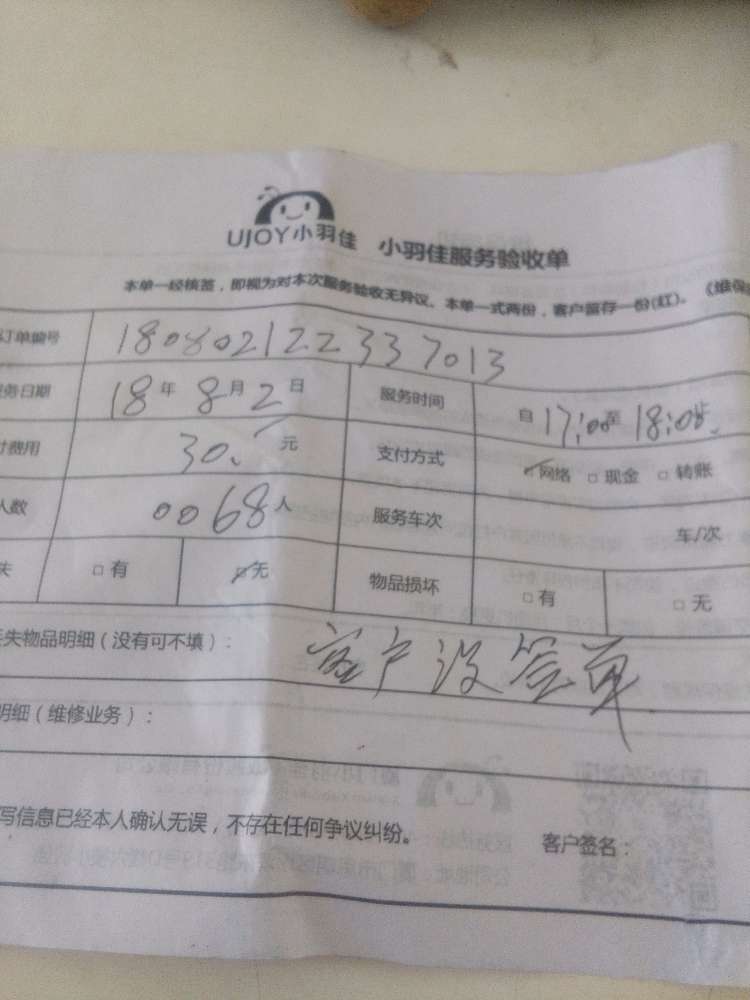 UJOY小羽佳 小羽佳服务验收单
本单一经核签，即视为对本次服务验收无异议、本单一式两份，客户留存一份(红)。（维保
订单编号 180802122337013
务日期 18年8月2日 服务时间 自17:00至18:00止
付费用 30.元 支付方式 网络 □现金 □转账
人数 0068人 服务车次 车/次
失 □有 无 物品损坏 □有 □无
失物品明细（没有可不填）： 客户没签单
明细（维修业务）：
写信息已经本人确认无误，不存在任何争议纠纷。 客户签名：